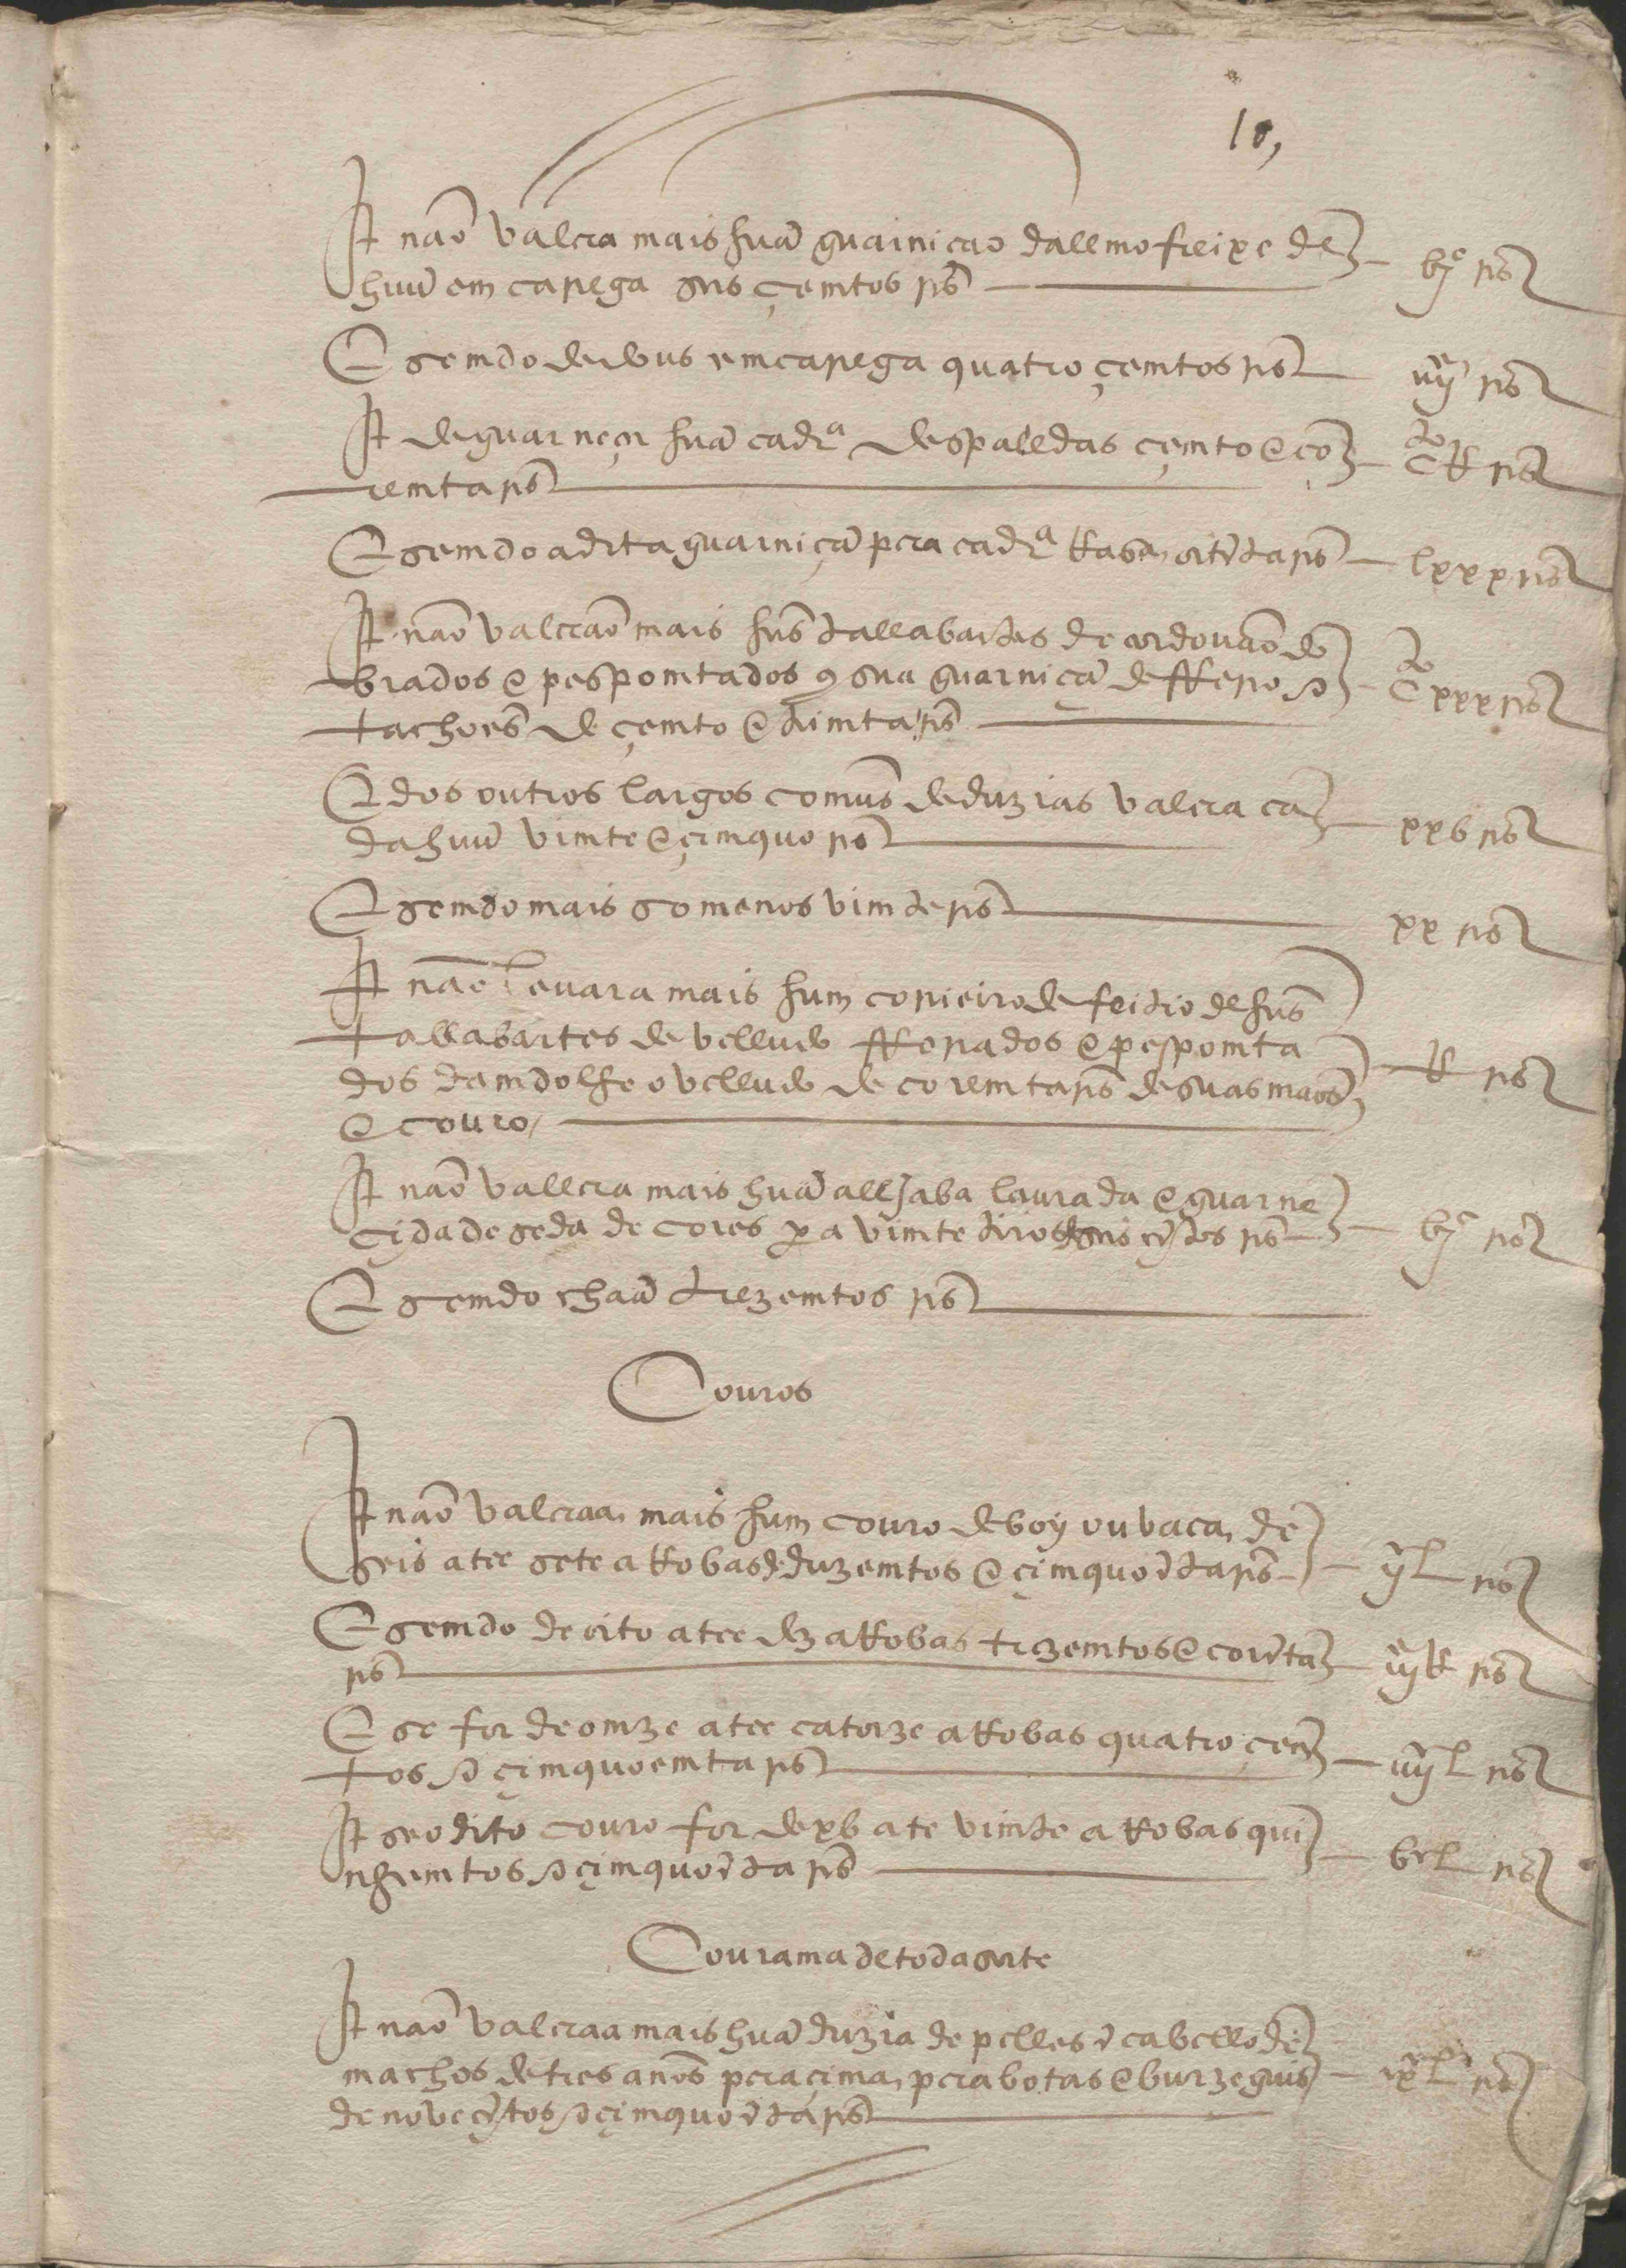 10,
It não valera mais huã guarnição dallmofreixe de
huũ em carrega seis çemtos rs
bjᶜ rs
E semdo de dous em carrega quatro çemtos rs
iiijᶜ rs
It de guarneçer huã cadrª despalldas çemto e co
remta rs
cto R rs
E semdo a dita guarniçã pera cadrª Rasa, oitẽta rs
lxxx rs
It não valerão mais hũs tallabartes de cordovão do
brados e pespomtados cõ sua guarniçã de fferro &
tachoẽs de çemto e trimta rs
cto xxx rs
E dos outros largos comũs de duzias valera ca
da huũ vimte e çimquo rs
xxb rs
E semdo mais somenos vimte rs
xx rs
It não levara mais hum correeiro de feitio de hũs
tallabartes de velludo fforrados e pespomta
dos damdolhe o velludo de coremta rs de suas mãos
e couro,
R rs
It não vallera mais huã alljaba laurada e guarne
çida de seda de cores pª vimte tiros seis cẽtos rs
bjᶜ rs
E semdo chaã trezemtos rs
Couros
It não valeraa, mais hum couro de boy ou vaca, de
seis atee sete aRobas de duzemtos e çimquoẽta rs
ijᶜ L rs
E semdo de oito atee dez aRobas trezemtos e corẽta
rs
iijᶜ R rs
E se for de omze atee catorze aRobas quatro çen
tos & çimquoemta rs
iiijᶜ L rs
It se o dito couro for de xb ate vimte aRobas qui
nhemtos & çimquoẽta rs
bᶜ L rs
Courama de toda sorte
It não valeraa mais huã duzia de pelles ẽ cabello de
machos de tres anos pera çima, pera botas e burzeguis
de nove cẽtos & çimquoẽta rs
ixᶜ L rs